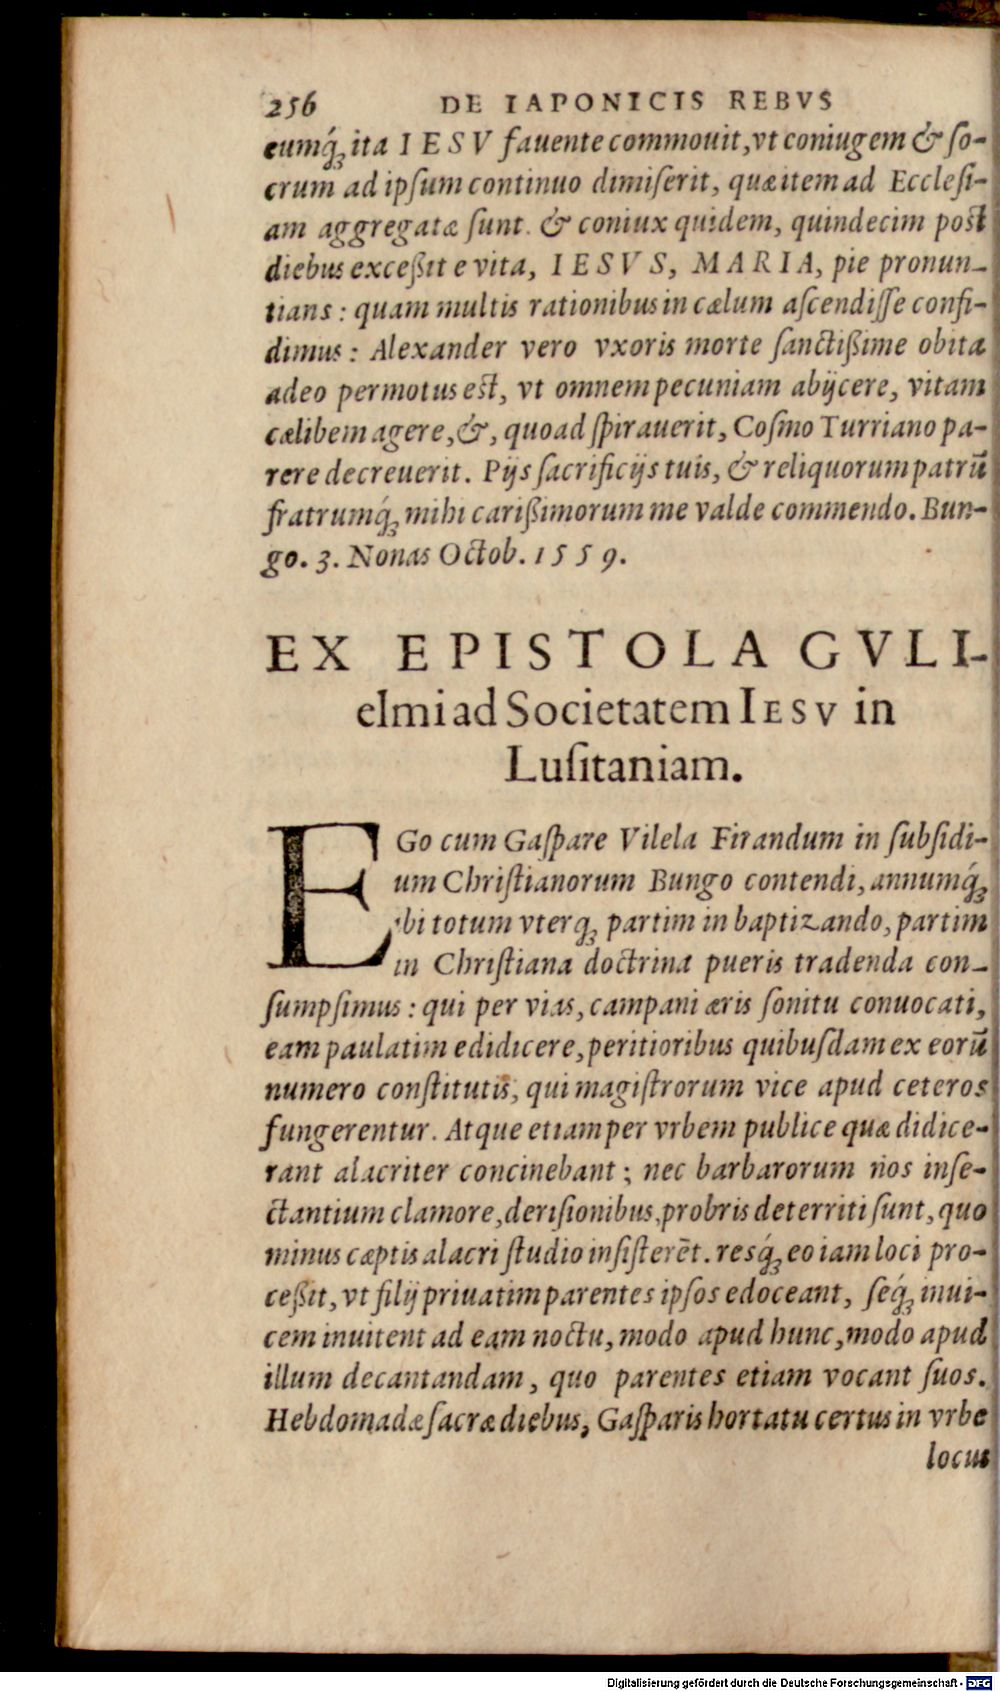 256 DE IAPONICIS REBVS
eumq́ꝫ ita IESV fauente commouit, vt coniugem & ſo-
crum ad ipſum continuo dimiſerit, quæ item ad Eccleſi-
am aggregatæ ſunt. & coniux quidem, quindecim poſt
diebus exceßit e vita, IESVS, MARIA, pie pronun-
tians: quam multis rationibus in cælum aſcendiſſe confi-
dimus: Alexander vero vxoris morte ſanctißime obita
adeo permotus eſt, vt omnem pecuniam abijcere, vitam
cælibem agere, &, quoad ſpirauerit, Coſmo Turriano pa-
rere decreuerit. Pijs ſacrificijs tuis, & reliquorum patrū
fratrumq́ꝫ mihi carißimorum me valde commendo. Bun-
go. 3. Nonas Octob. 1559.
EX EPISTOLA GVLI-
elmi ad Societatem IESV in
Luſitaniam.
EGo cum Gaſpare Vilela Firandum in ſubſidi-
um Chriſtianorum Bungo contendi, annumq́ꝫ
ibi totum vterqꝫ partim in baptizando, partim
in Chriſtiana doctrina pueris tradenda con-
ſumpſimus: qui per vias, campani æris ſonitu conuocati,
eam paulatim edidicere, peritioribus quibuſdam ex eorū
numero conſtitutis, qui magiſtrorum vice apud ceteros
fungerentur. Atque etiam per vrbem publice quæ didice-
rant alacriter concinebant; nec barbarorum nos inſe-
ctantium clamore, deriſionibus, probris deterriti ſunt, quo
minus cæptis alacri ſtudio inſiſterēt. resq́ꝫ eo iam loci pro-
ceßit, vt filij priuatim parentes ipſos edoceant, ſeq́ꝫ inui-
cem inuitent ad eam noctu, modo apud hunc, modo apud
illum decantandam, quo parentes etiam vocant ſuos.
Hebdomadæ ſacræ diebus, Gaſparis hortatu certus in vrbe
locus
Digitalisierung gefördert durch die Deutsche Forschungsgemeinschaft - DFG